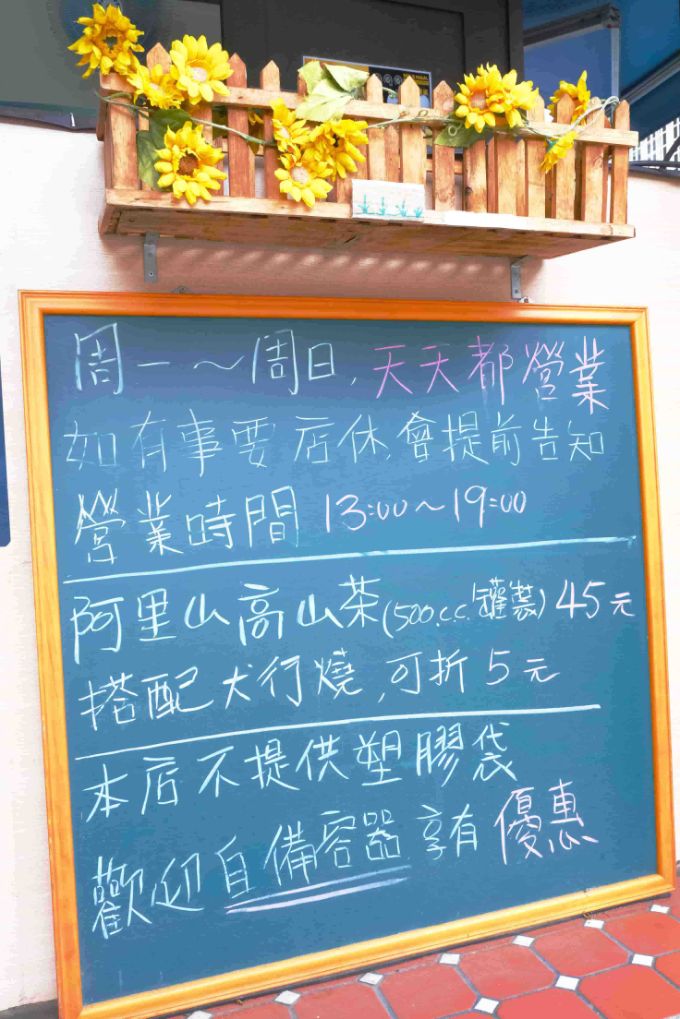 周一～周日,天天都營業
如有事要店休,會提前告知
營業時間 13:00～19:00
阿里山高山茶(500c.c.罐裝)45元
搭配犬行燒,可折5元
本店不提供塑膠袋
歡迎自備容器 享有優惠